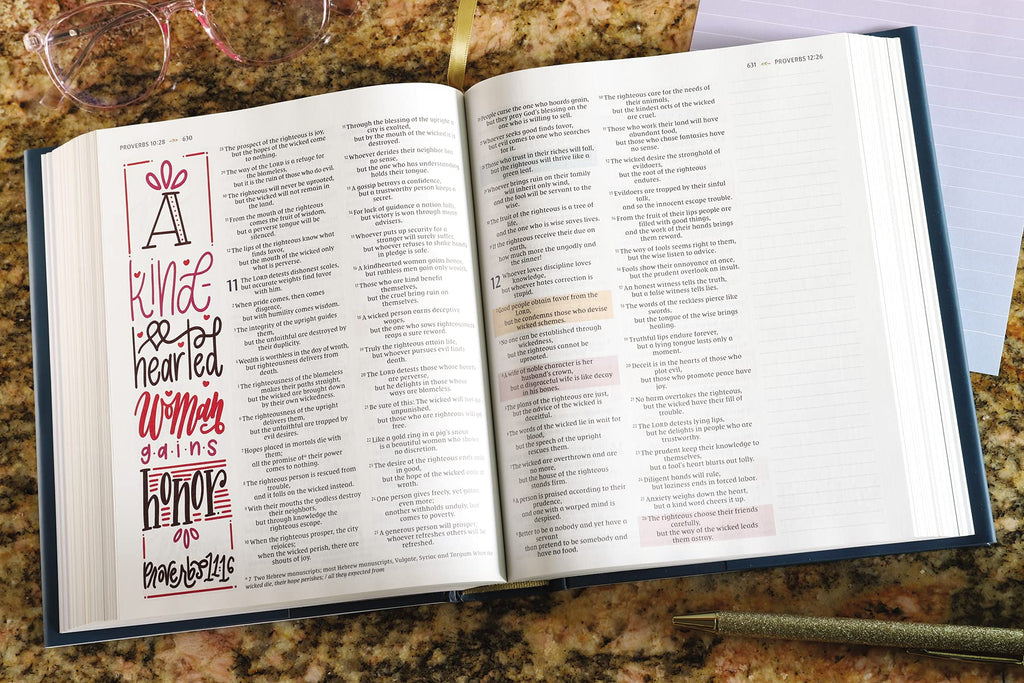 PROVERBS 10:28 630
A
kind-
&
hearted
Woman
gains
honor.
Proverbs 11:16
28 The prospect of the righteous is joy,
but the hopes of the wicked come
to nothing.
29 The way of the LORD is a refuge for
the blameless,
but it is the ruin of those who do evil.
30 The righteous will never be uprooted,
but the wicked will not remain in
the land.
31 From the mouth of the righteous
comes the fruit of wisdom,
but a perverse tongue will be
silenced.
32 The lips of the righteous know what
finds favor,
but the mouth of the wicked only
what is perverse.
11 The LORD detests dishonest scales,
but accurate weights find favor
with him.
2 When pride comes, then comes
disgrace,
but with humility comes wisdom.
3 The integrity of the upright guides
them,
but the unfaithful are destroyed by
their duplicity.
4 Wealth is worthless in the day of wrath,
but righteousness delivers from
death.
5 The righteousness of the blameless
makes their paths straight,
but the wicked are brought down
by their own wickedness.
6 The righteousness of the upright
delivers them,
but the unfaithful are trapped by
evil desires.
7 Hopes placed in mortals die with
them;
all the promise of a their power
comes to nothing.
8 The righteous person is rescued from
trouble,
and it falls on the wicked instead.
9 With their mouths the godless destroy
their neighbors,
but through knowledge the
righteous escape.
10 When the righteous prosper, the city
rejoices;
when the wicked perish, there are
shouts of joy.
11 Through the blessing of the upright a
city is exalted,
but by the mouth of the wicked it is
destroyed.
12 Whoever derides their neighbor has
no sense,
but the one who has understanding
holds their tongue.
13 A gossip betrays a confidence,
but a trustworthy person keeps a
secret.
14 For lack of guidance a nation falls,
but victory is won through many
advisers.
15 Whoever puts up security for a
stranger will surely suffer,
but whoever refuses to shake hands
in pledge is safe.
16 A kindhearted woman gains honor,
but ruthless men gain only wealth.
17 Those who are kind benefit
themselves,
but the cruel bring ruin on
themselves.
18 A wicked person earns deceptive
wages,
but the one who sows righteousness
reaps a sure reward.
19 Truly the righteous attain life,
but whoever pursues evil finds
death.
20 The LORD detests those whose hearts
are perverse,
but he delights in those whose
ways are blameless.
21 Be sure of this: The wicked will not go
unpunished,
but those who are righteous will go
free.
22 Like a gold ring in a pig's snout
is a beautiful woman who shows
no discretion.
23 The desire of the righteous ends only
in good,
but the hope of the wicked only in
wrath.
24 One person gives freely, yet gains
even more;
another withholds unduly, but
comes to poverty.
25 A generous person will prosper;
whoever refreshes others will be
refreshed.
a 7 Two Hebrew manuscripts; most Hebrew manuscripts, Vulgate, Syriac and Targum When the
wicked die, their hope perishes; / all they expected from
631 PROVERBS 12:26
26 People curse the one who hoards grain,
but they pray God's blessing on the
one who is willing to sell.
27 Whoever seeks good finds favor,
but evil comes to one who searches
for it.
28 Those who trust in their riches will fall,
but the righteous will thrive like a
green leaf.
29 Whoever brings ruin on their family
will inherit only wind,
and the fool will be servant to the
wise.
30 The fruit of the righteous is a tree of
life,
and the one who is wise saves lives.
31 If the righteous receive their due on
earth,
how much more the ungodly and
the sinner!
12 Whoever loves discipline loves
knowledge,
but whoever hates correction is
stupid.
2 Good people obtain favor from the
LORD,
but he condemns those who devise
wicked schemes.
3 No one can be established through
wickedness,
but the righteous cannot be
uprooted.
4 A wife of noble character is her
husband's crown,
but a disgraceful wife is like decay
in his bones.
5 The plans of the righteous are just,
but the advice of the wicked is
deceitful.
6 The words of the wicked lie in wait for
blood,
but the speech of the upright
rescues them.
7 The wicked are overthrown and are
no more,
but the house of the righteous
stands firm.
8 A person is praised according to their
prudence,
and one with a warped mind is
despised.
9 Better to be a nobody and yet have a
servant
than pretend to be somebody and
have no food.
10 The righteous care for the needs of
their animals,
but the kindest acts of the wicked
are cruel.
11 Those who work their land will have
abundant food,
but those who chase fantasies have
no sense.
12 The wicked desire the stronghold of
evildoers,
but the root of the righteous
endures.
13 Evildoers are trapped by their sinful
talk,
and so the innocent escape trouble.
14 From the fruit of their lips people are
filled with good things,
and the work of their hands brings
them reward.
15 The way of fools seems right to them,
but the wise listen to advice.
16 Fools show their annoyance at once,
but the prudent overlook an insult.
17 An honest witness tells the truth,
but a false witness tells lies.
18 The words of the reckless pierce like
swords,
but the tongue of the wise brings
healing.
19 Truthful lips endure forever,
but a lying tongue lasts only a
moment.
20 Deceit is in the hearts of those who
plot evil,
but those who promote peace have
joy.
21 No harm overtakes the righteous,
but the wicked have their fill of
trouble.
22 The LORD detests lying lips,
but he delights in people who are
trustworthy.
23 The prudent keep their knowledge to
themselves,
but a fool's heart blurts out folly.
24 Diligent hands will rule,
but laziness ends in forced labor.
25 Anxiety weighs down the heart,
but a kind word cheers it up.
26 The righteous choose their friends
carefully,
but the way of the wicked leads
them astray.